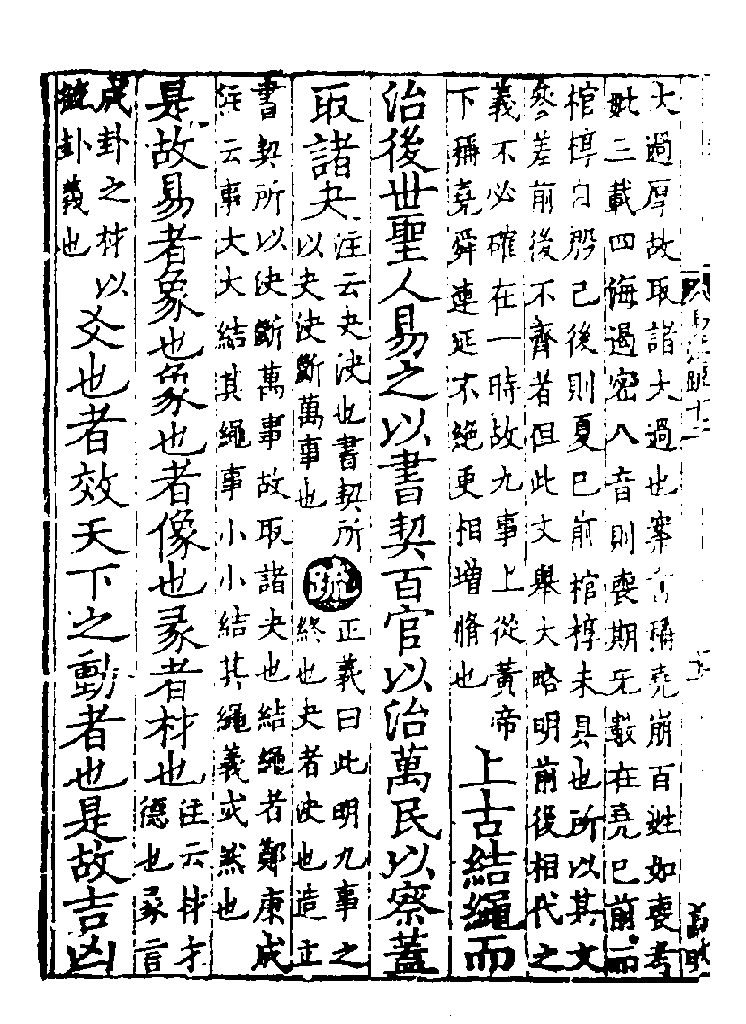 大過厚故取諸大過也案書稱堯崩百姓如喪考
妣三載四海遏密八音則喪期无數在堯已前而
棺槨自殷已後則夏已前棺槨未具也所以其文
參差前後不齊者但此文舉大略明前後相代之
義不必確在一時故九事上從黃帝
下稱堯舜連延不絕更相增脩也
上古結繩而
治後世聖人易之以書契百官以治萬民以察蓋
取諸夬
注云夬決也書契所
以夬決斷萬事也
疏
正義曰此明九事之
終也夬者決也造立
書契所以決斷萬事故取諸夬也結繩者鄭康成
注云事大大結其繩事小小結其繩義或然也
是故易者象也象也者像也彖者材也
注云材才
德也彖言
成卦之材以
統卦義也
爻也者效天下之動者也是故吉凶